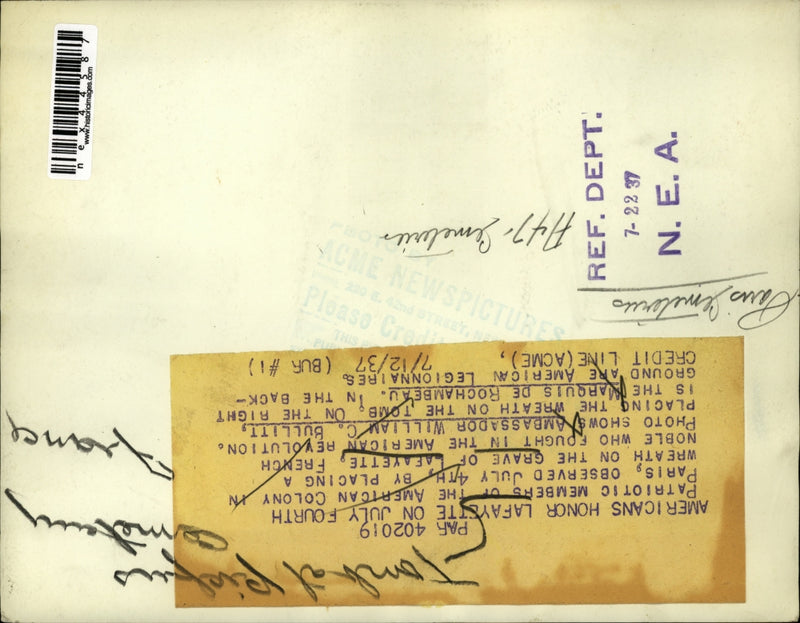 nex44587
www.historicimages.com
REF. DEPT.
7-22 37
N. E. A.
A47- Cemeteries
Paris Cemeteries
ACME NEWSPICTURES
220 E. 42nd STREET, NEW
Please Credit
Tomb at Picpus
Cemetery
France
PAR 402019
AMERICANS HONOR LAFAYETTE ON JULY FOURTH
PATRIOTIC MEMBERS OF THE AMERICAN COLONY IN
PARIS, OBSERVED JULY 4TH BY PLACING A
WREATH ON THE GRAVE OF LAFAYETTE, FRENCH
NOBLE WHO FOUGHT IN THE AMERICAN REVOLUTION.
PHOTO SHOWS AMBASSADOR WILLIAM C. BULLITT,
PLACING THE WREATH ON THE TOMB. ON THE RIGHT
IS THE MARQUIS DE ROCHAMBEAU. IN THE BACK-
GROUND ARE AMERICAN LEGIONNAIRES.
CREDIT LINE(ACME), 7/12/37 (BUR #1)